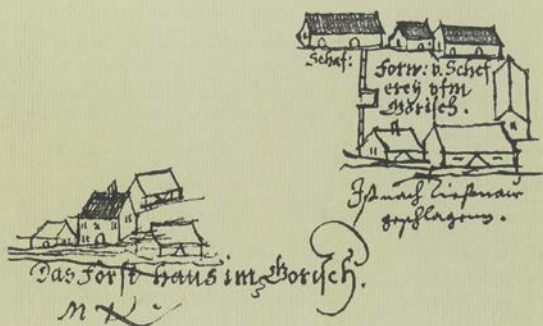 Schef:
Forw: v. Schef
erey vfm
Görisch.
Ist nach Tießnaw
geschlagenn.
Das Forst haus im Gorisch.